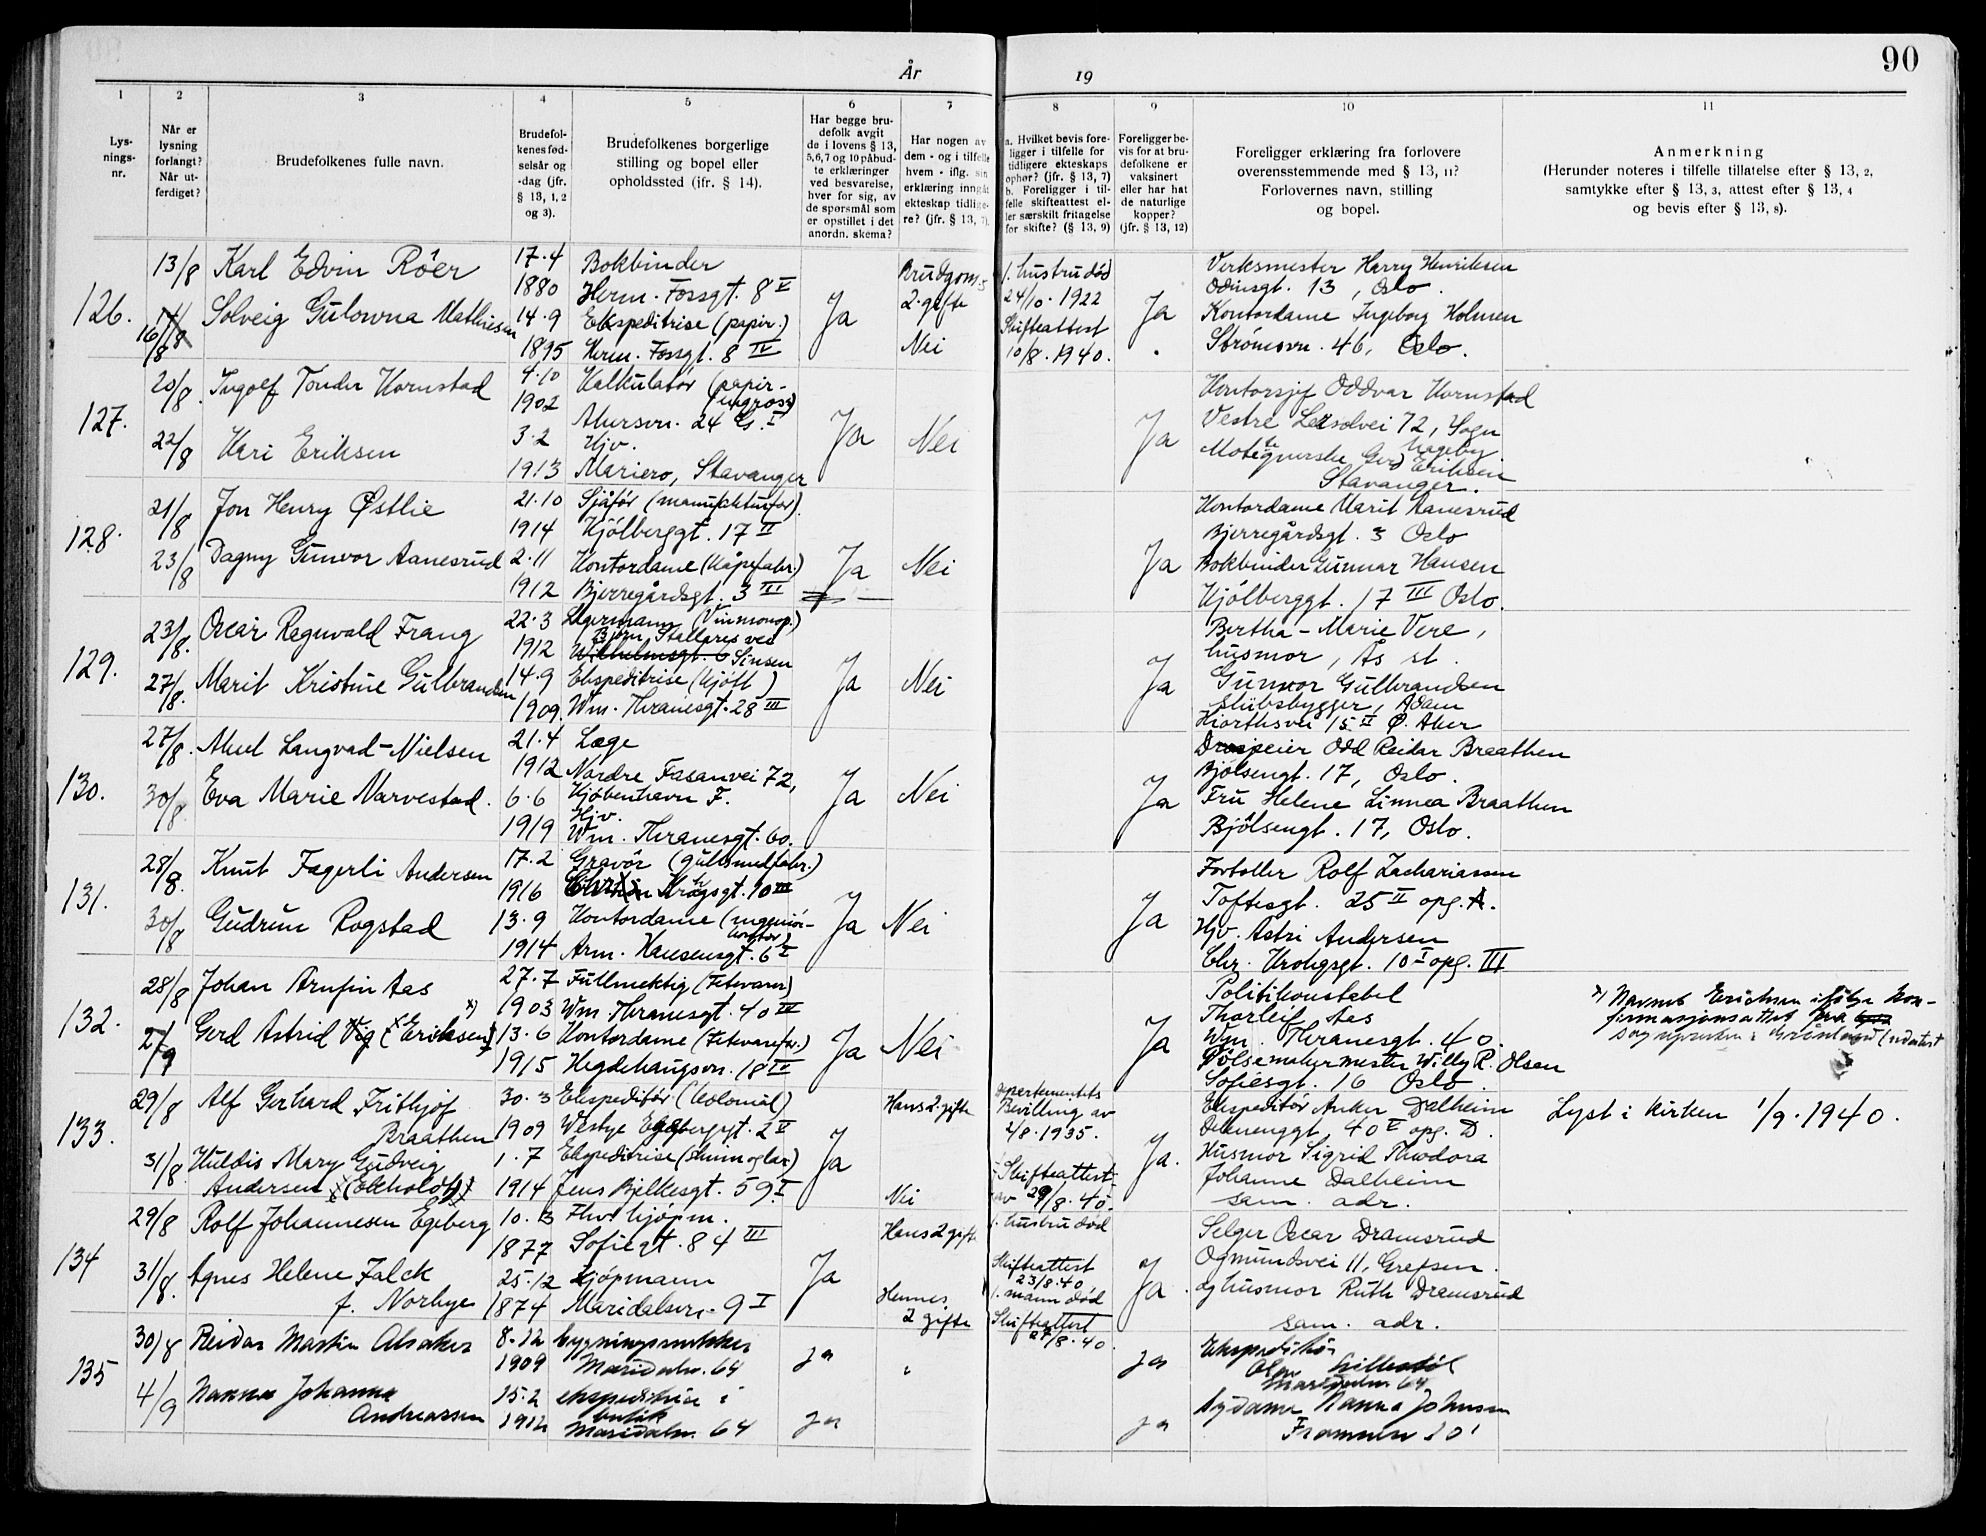 År 19
90
1 2 3 4 5 6 7 8 9 10 11
Lys-
nings-
nr.
Når er
lysning
forlangt?
Når ut-
ferdiget?
Brudefolkenes fulle navn.
Brudefol-
kenes fød-
selsår og
-dag (jfr.
§ 13, 1, 2
og 3).
Brudefolkenes borgerlige
stilling og bopel eller
opholdssted (jfr. § 14).
Har begge bru-
defolk avgit
de i lovens § 13,
5,6,7 og 10 påbud-
te erklæringer
ved besvarelse,
hver for sig, av
de spørsmål som
er opstillet i det
anordn. skema?
Har nogen av
dem - og i tilfelle
hvem - iflg. sin
erklæring inngåt
ekteskap tidlige-
re? (jfr. § 13, 7).
a. Hvilket bevis fore-
ligger i tilfelle for
tidligere ekteskaps
ophør? (jfr. § 13, 7)
b. Foreligger i til-
felle skifteattest el-
ler særskilt fritagelse
for skifte? (§ 13, 9)
Foreligger be-
vis for at bru-
defolkene er
vaksinert
eller har hat
de naturlige
kopper?
(jfr. § 13, 12)
Foreligger erklæring fra forlovere
overensstemmende med § 13, 11?
Forlovernes navn, stilling
og bopel.
Anmerkning
(Herunder noteres i tilfelle tillatelse efter § 13, 2,
samtykke efter § 13, 3, attest efter § 13, 4
og bevis efter § 13, 8).
126. 13/8 Karl Edvin Röer 17.4 1880 Bokbinder
Herm. Fossgt. 8 V
16/8 Solveig Gulowna Mathiesen 14.9 1895 Ekspeditrise (papir.)
Herm. Fossgt. 8 IV
Ja
Brudgoms
2. gifte
Nei
1. hustru død
24/10. 1922
Skifteattest
10/8. 1940.
Ja
Verksmester Harry Henriksen
Odinsgt. 13, Oslo.
Kontordame Ingeborg Holmen
Strömsvn. 46, Oslo.
127. 20/8. Ingolf Tonder Kornstad 4.10 1902 Kalkulatör (papir-
engros)
Akersvn. 24 I
22/8 Kari Eriksen 3.2 1913 Hjv.
Mariero, Stavanger
Ja Nei Ja
Kontorsjef Oddvar Kornstad
72, Sogn
Hageby.
Gerd Eriksen
Stavanger.
128. 21/8 Jon Henry Østlie 21.10 1914 Sjåför (manufakturfor.)
Kjölberggt. 17 II
23/8 Dagny Gunvor Aanesrud 2.11 1912 Kontordame (Kåpefabr.)
Bjerregårdsgt. 3 III
Ja Nei Ja
Kontordame Marit Aanesrud
Bjerregårdsgt. 3 Oslo
Bokbinder Gunnar Hansen
Kjölberggt. 17 III Oslo.
129. 23/8. Oscar Ragnvald Frang 22.3 1912 Lagermann (Vinmonop.)
Björn Stallares vei
Wilhelmsgt. 6 Sinsen
27/8. Marit Kristine Gulbrandsen 14.9 1909. Ekspeditrise (kjött)
Wm. Thranesgt. 28 III
Ja Nei Ja
Bertha-Marie Vere,
husmor, Ås st.
Gunnar Gulbrandsen
skibsbygger, Adam
Hjorthsvei 15 II Ø. Aker
130. 27/8. Aksel Langvad-Nielsen 21.4 1912 Læge
Nordre Fasanvei 72,
Kjøbenhavn F.
30/8. Eva Marie Narvestad. 6.6 1919 Hjv.
Wm. Thranesgt. 60.
Ja Nei Ja
Drosjeeier Odd Reidar Braathen
Bjölsengt. 17, Oslo.
Fru Helene Linnea Braathen
Bjölsengt. 17, Oslo.
131. 28/8. Knut Fagerli Andersen 17.2 1916 Gravör (gullsmedfabr.)
Krohgsgt. 10 III
30/8 Gudrun Rogstad 13.9 1914 Kontordame (ingeniör-
kontor)
Arm. Hansensgt. 6 I
Ja Nei Ja
Fortoller Rolf Zachariassen
Toftesgt. 25 II opg. A.
Hjv. Astri Andersen
Chr. Krohgsgt. 10 I opg. III
132. 28/8 Johan Arnfin Aas 27.7 1903 Fullmektig (Fetevarer)
Wm Thranesgt. 40 IV
2/9 Gerd Astrid Vig (Eriksen) x) 13.6 1915 Kontordame (Fetevarefor.)
Hegdehaugsvn. 18 IV
Ja Nei Ja
Politikonstabel
Thorleif Aas
Wm. Thranesgt. 40.
Pölsemakermester Willy R. Olsen
Sofiesgt. 16 Oslo
x) Navnet Erichsen ifölge kon-
firmasjonsattest fra
133. 29/8 Alf Gerhard Frithjof
Braathen 30.3 1909 Ekspeditör (Kolonial)
Westye Egebergsgt. 2 V
31/8. Huldis Mary Gudveig
Andersen (Ekholdt) 1.7 1914 Ekspeditrise
Jens Bjelkesgt. 59 I
Ja
Hans 2 gifte
Nei
Departementets
Bevilling av
2/8. 1935.
Skifteattest
av 29/8. 40.
Ja.
Ekspeditör Anker Dalheim
40 V opg. D.
Husmor Sigrid Theodora
Johanne Dalheim
sam. adr.
Lyst i kirken 1/9. 1940.
134 29/8 Rolf Johannesen Egeberg 10.3 1877 Fhv kjöpm.
Sofiegt. 84 III
31/8. Agnes Helene Falck
f. Norbye 25.12 1874 Kjöpmann
Maridalsvn. 9 I
Ja
Hans 2 gifte
Hennes
2 gifte
1. hustru död
Skifteattest
23/8.40
1. mann död
Skifteattest
27/8.40.
Ja.
Selger Oscar Dramsrud
Ogmundsvei 11, Grefsen.
og husmor Ruth Dramsrud
sam. adr.
135 30/8 Reidar Martin Alsaker 8.12 1909 bygningssnekker
Maridalsv. 64
4/9 Nanna Johanna
Andreassen 15.2 1912 ekspeditrise i
butik
Maridalsv. 64
ja
ja
ja
ja
Ekspeditör
Maridalsv. 64
Sydame Nanna Johnsen